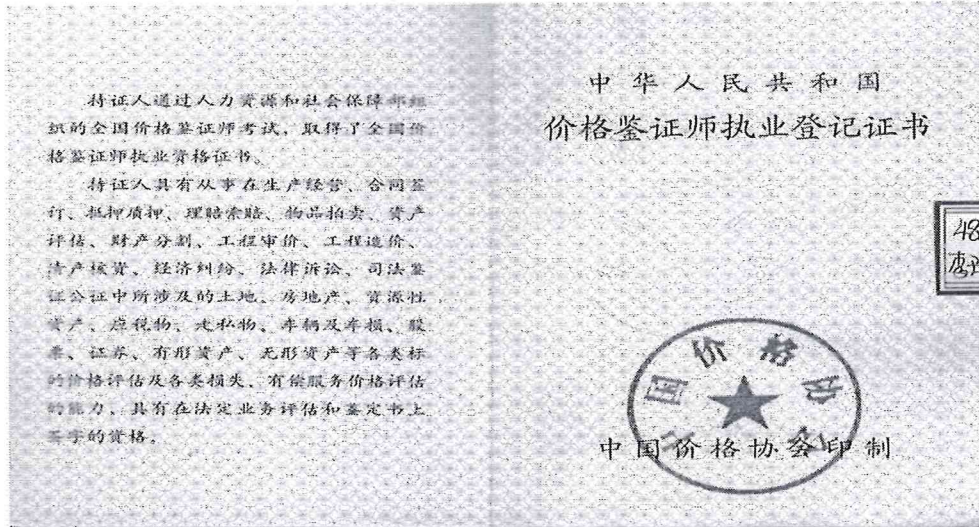 持证人通过人力资源和社会保障部组
织的全国价格鉴证师考试，取得了全国价
格鉴证师执业资格证书。
持证人具有从事在生产经营、合同签
订、抵押质押、理赔索赔、物品拍卖、资产
评估、财产分割、工程审价、工程造价、
清产核资、经济纠纷、法律诉讼、司法鉴
证公证中所涉及的土地、房地产、资源性
资产、应税物、走私物、车辆及车损、股
票、证券、有形资产、无形资产等各类标
的价格评估及各类损失、有偿服务价格评估
的能力，具有在法定业务评估和鉴定书上
签字的资格。
中华人民共和国
价格鉴证师执业登记证书
48
中国价格协会
中国价格协会印制